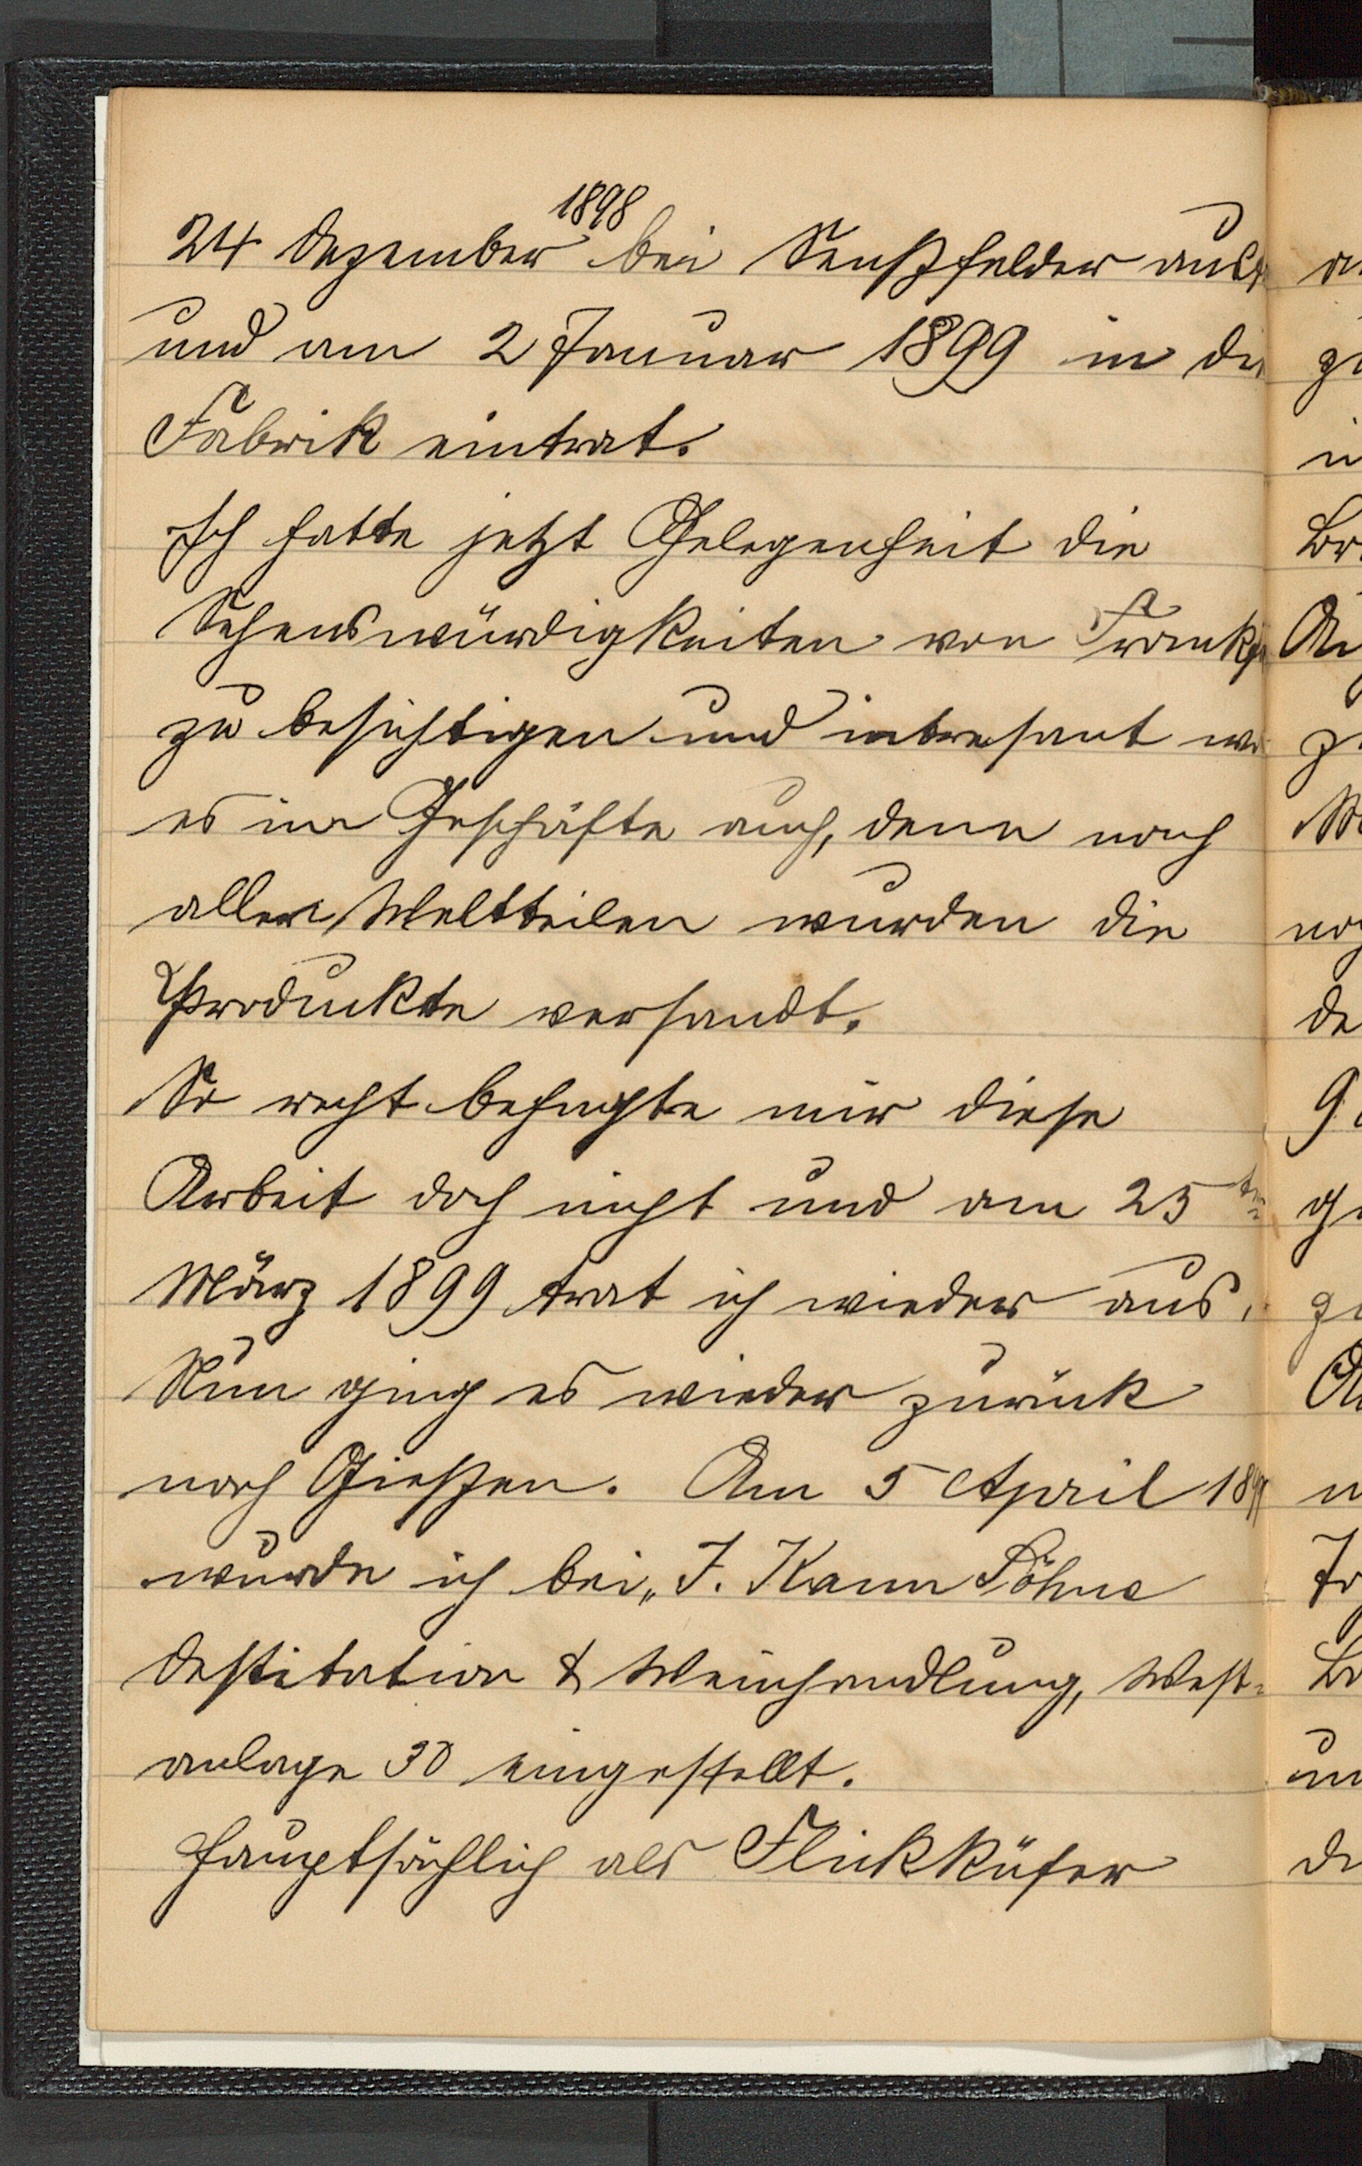 1898
24 Dezember bei Senßfelder aus
und am 2 Januar 1899 in di
Fabrik eintrat.
Ich hatte jetzt Gelegenheit die
Sehenswürdigkeiten von Frankf
zu besichtigen und intresant wa
es im Geschäfte auch, denn nach
allen Weltteilen wurden die
Produkte versandt.
So recht behagte mir diese
Arbeit doch nicht und am 25ten
März 1899 trat ich wieder aus.
Nun ging es wieder zurück
nach Gießen. Am 5 April 1899
wurde ich bei „J. Kann Söhne
Destilation & Weinhandlung, West-
anlage 30 eingestellt.
Hauptsächlich als Flickküfer